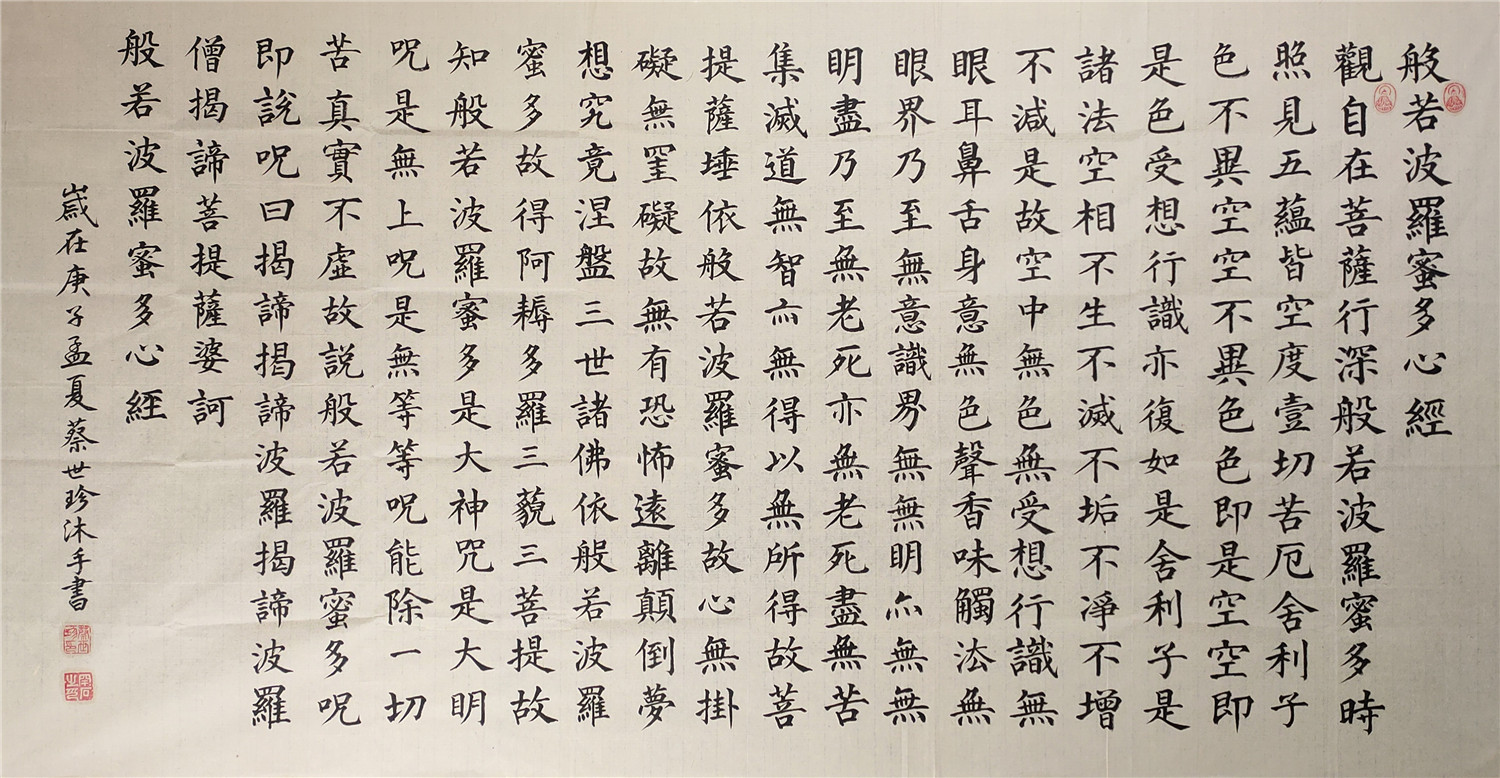 般若波羅蜜多心經
觀自在菩薩行深般若波羅蜜多時
照見五蘊皆空度壹切苦厄舍利子
色不異空空不異色色即是空空即
是色受想行識亦復如是舍利子是
諸法空相不生不滅不垢不淨不增
不減是故空中無色無受想行識無
眼耳鼻舌身意無色聲香味觸法無
眼界乃至無意識界無無明亦無無
明盡乃至無老死亦無老死盡無苦
集滅道無智亦無得以無所得故菩
提薩埵依般若波羅蜜多故心無掛
礙無罣礙故無有恐怖遠離顛倒夢
想究竟涅盤三世諸佛依般若波羅
蜜多故得阿耨多羅三藐三菩提故
知般若波羅蜜多是大神咒是大明
呪是無上呪是無等等呪能除一切
苦真實不虛故説般若波羅蜜多呪
即説呪曰揭諦揭諦波羅揭諦波羅
僧揭諦菩提薩婆訶
般若波羅蜜多心經
歲在庚子孟夏蔡世珍沐手書